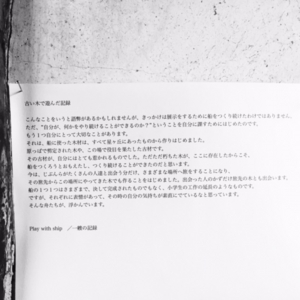 古い木で遊んだ記録
こんなことをいうと語弊があるかもしれませんが、きっかけは展示をするために船をつくり続けたわけではありません。
ただ、"自分が、何かをやり続けることができるのか？"ということを自分に課すためにはじめたのです。
もう１つ自分にとって大切なことがあります。
それは、船に使った木材は、すべて屋ヶ丘にあったものから作りはじめました。
錆っぽで剪定された木や、この地で役目を果たした古材です。
その古材が、自分にはとても惹かれるものでした。ただただ朽ちた木が、ここに存在したからこそ、
船をつくろうとおもえたし、つくり続けることができたのだと思います。
今は、じぶんがたくさんの人達と出会う分だけ、さまざまな場所へ旅をするようになり、
その旅先からこの場所にやってきた木でも作ることをはじめました。出会った人のかずだけ旅先の木とも出会います。
船の１つ１つはさまざまで、決して完成されたものでもなく、小学生の工作の延長のようなものです。
ですが、それぞれに表情があって、その時の自分の気持ちが素直にでているなと思っています。
そんな舟たちが、浮かんでいます。
Play with ship ／一艘の記録